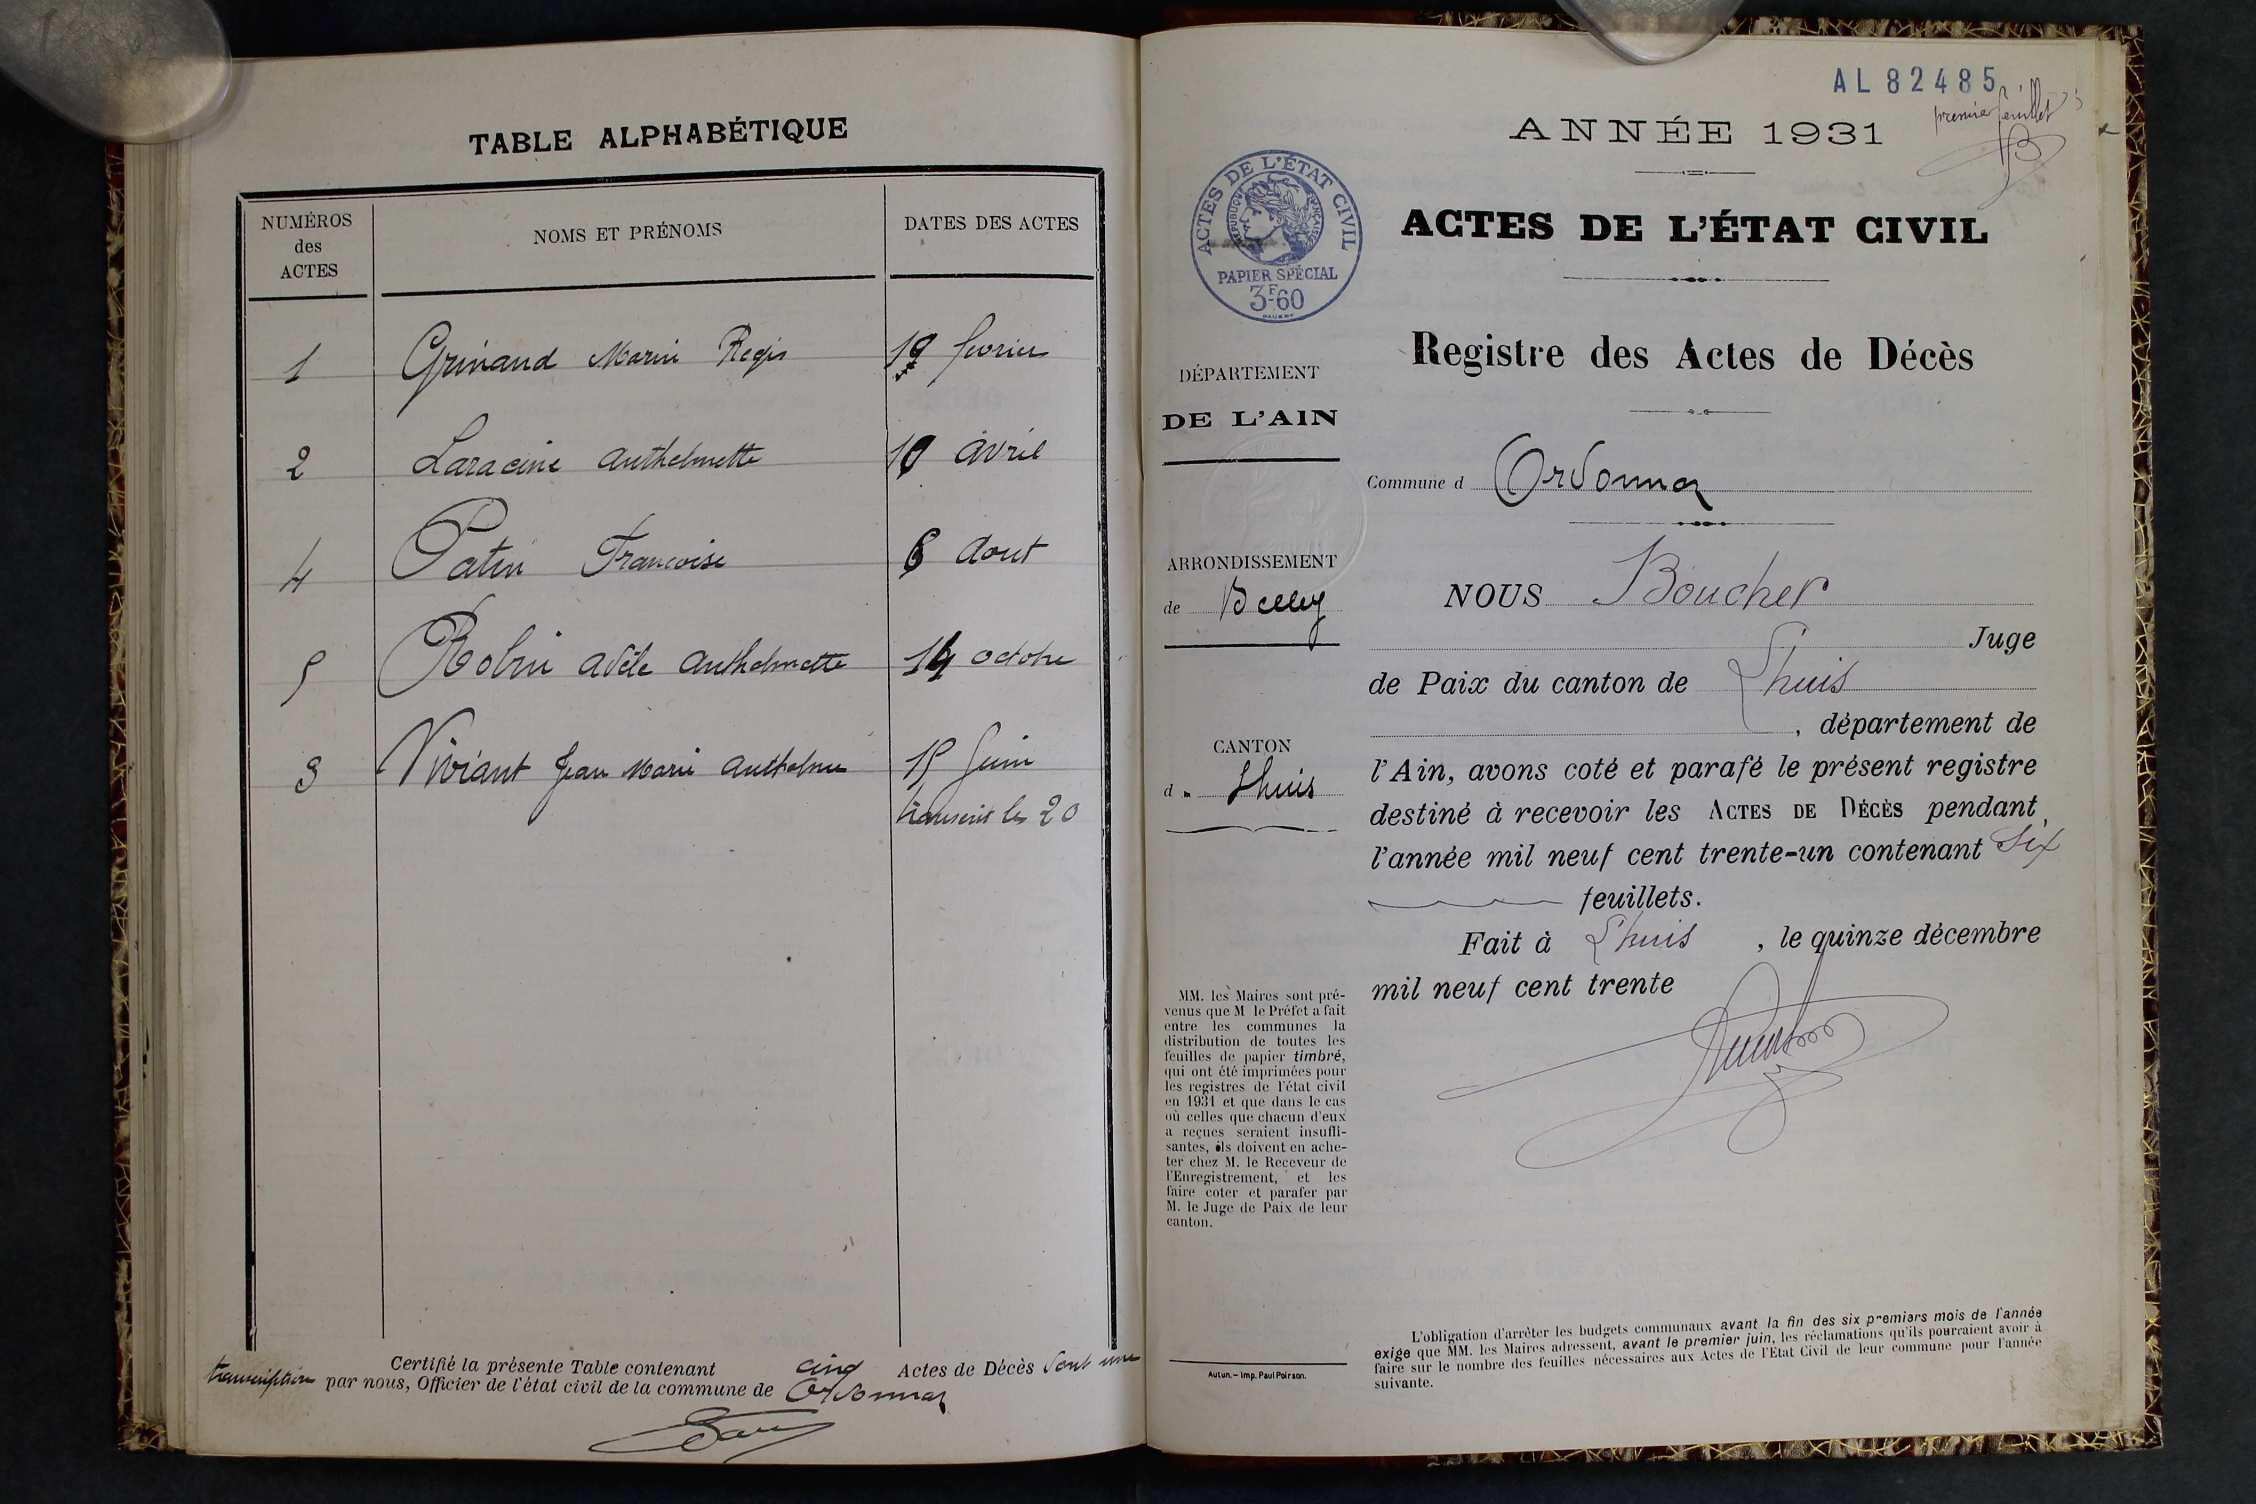 TABLE ALPHABÉTIQUE
NUMÉROS
des
ACTES
NOMS ET PRÉNOMS
DATES DES ACTES
1 Grinand Marie Regis 19 fevrier
2 Laracine Anthelmette 10 avril
4 Patin Francoise 6 Aout
5 Robin Adèle Anthelmette 14 octobre
3 Viviant Jean Marie Anthelme 15 Juin
transcrit le 20
Certifié la présente Table contenant cinq Actes de Décès dont une
transcription par nous, Officier de l'état civil de la commune de Ordonnaz
AL 82485
premier feuillet
ANNÉE 1931
ACTES DE L'ÉTAT CIVIL
RÉPUBLIQUE FRANÇAISE
PAPIER SPÉCIAL
3F.60
ACTES DE L'ÉTAT CIVIL
Registre des Actes de Décès
DÉPARTEMENT
DE L'AIN
Commune d Ordonnaz
ARRONDISSEMENT
de Belley
CANTON
d Lhuis
NOUS Boucher
Juge
de Paix du canton de Lhuis
, département de
l'Ain, avons coté et parafé le présent registre
destiné à recevoir les ACTES DE DÉCÈS pendant
l'année mil neuf cent trente-un contenant six
feuillets.
Fait à Lhuis , le quinze décembre
mil neuf cent trente
MM. les Maires sont pré-
venus que M le Préfet a fait
entre les communes la
distribution de toutes les
feuilles de papier timbré,
qui ont été imprimées pour
les registres de l'état civil
en 1931 et que dans le cas
où celles que chacun d'eux
a reçues seraient insuffi-
santes, ils doivent en ache-
ter chez M. le Receveur de
l'Enregistrement, et les
faire coter et parafer par
M. le Juge de Paix de leur
canton.
Autun. – Imp. Paul Poirson.
L'obligation d'arrêter les budgets communaux avant la fin des six premiers mois de l'année
exige que MM. les Maires adressent, avant le premier juin, les réclamations qu'ils pourraient avoir à
faire sur le nombre des feuilles nécessaires aux Actes de l'Etat Civil de leur commune pour l'année
suivante.